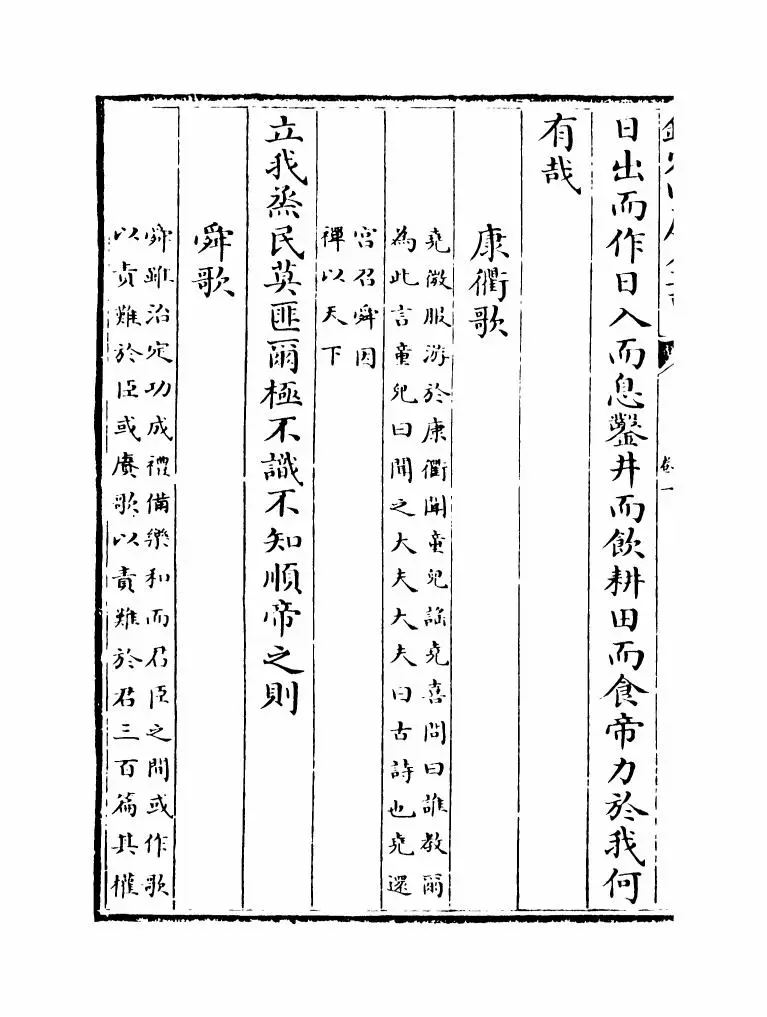 日出而作日入而息鑿井而飲耕田而食帝力於我何
有哉
康衢歌
堯微服游於康衢聞童兒謡堯喜問曰誰教爾
為此言童兒曰聞之大夫大夫曰古詩也堯還
宫召舜因
禪以天下
立我烝民莫匪爾極不識不知順帝之則
舜歌
舜雖治定功成禮備樂和而君臣之間或作歌
以責難於臣或賡歌以責難於君三百篇其權